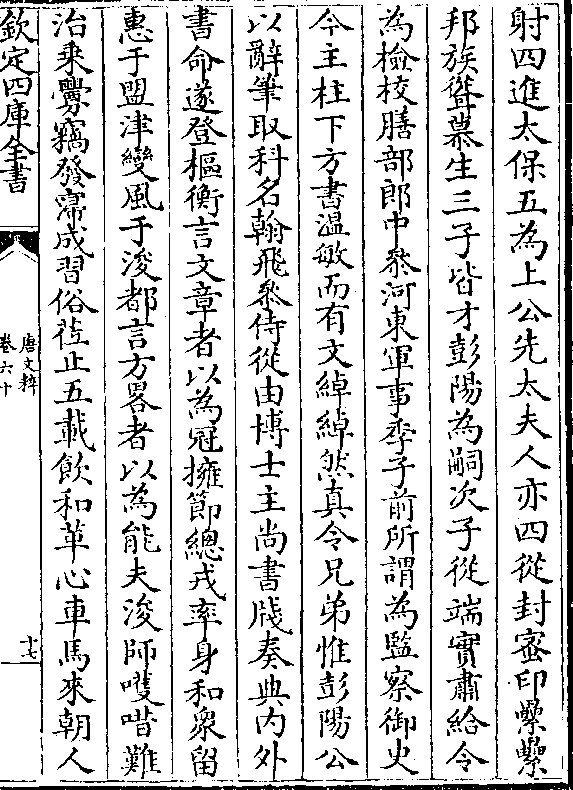 射四進太保五為上公先太夫人亦四從封蜜印纍纍
邦族聳慕生三子皆才彭陽為嗣次子從端實肅給令
為檢校膳部郎中叅河東軍事季子前所謂為監察御史
今主柱下方書溫敏而有文綽綽然真令兄弟惟彭陽公
以辭筆取科名翰飛叅侍從由博士主尚書牋奏典內外
書命遂登樞衡言文章者以為冠擁節總戎率身和衆留
惠于盟津變風于浚都言方畧者以為能夫浚師嘑唶難
治乗釁竊發㴿成習俗莅止五載飲和革心車馬來朝人
欽定四庫全書
唐文粹
卷六十
十七